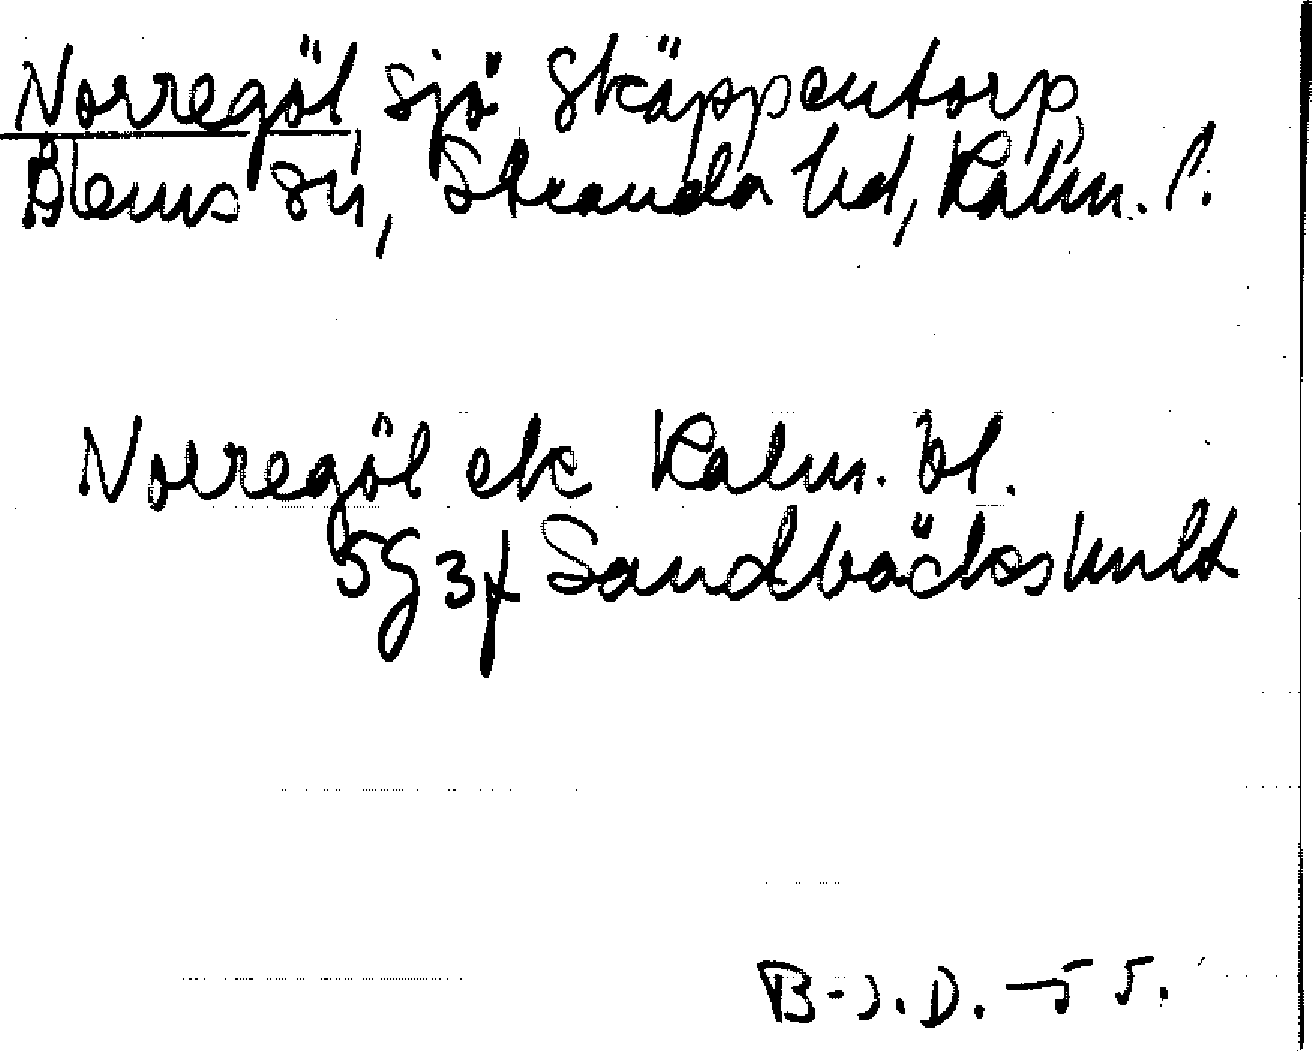 Norregöl sjö Skäppentorp,
Blems sn, Stranda hd, Kalm. l.
Norregöl ek Kalm. bl.
5G3f Sandbäckshult
B-J.D. -55.